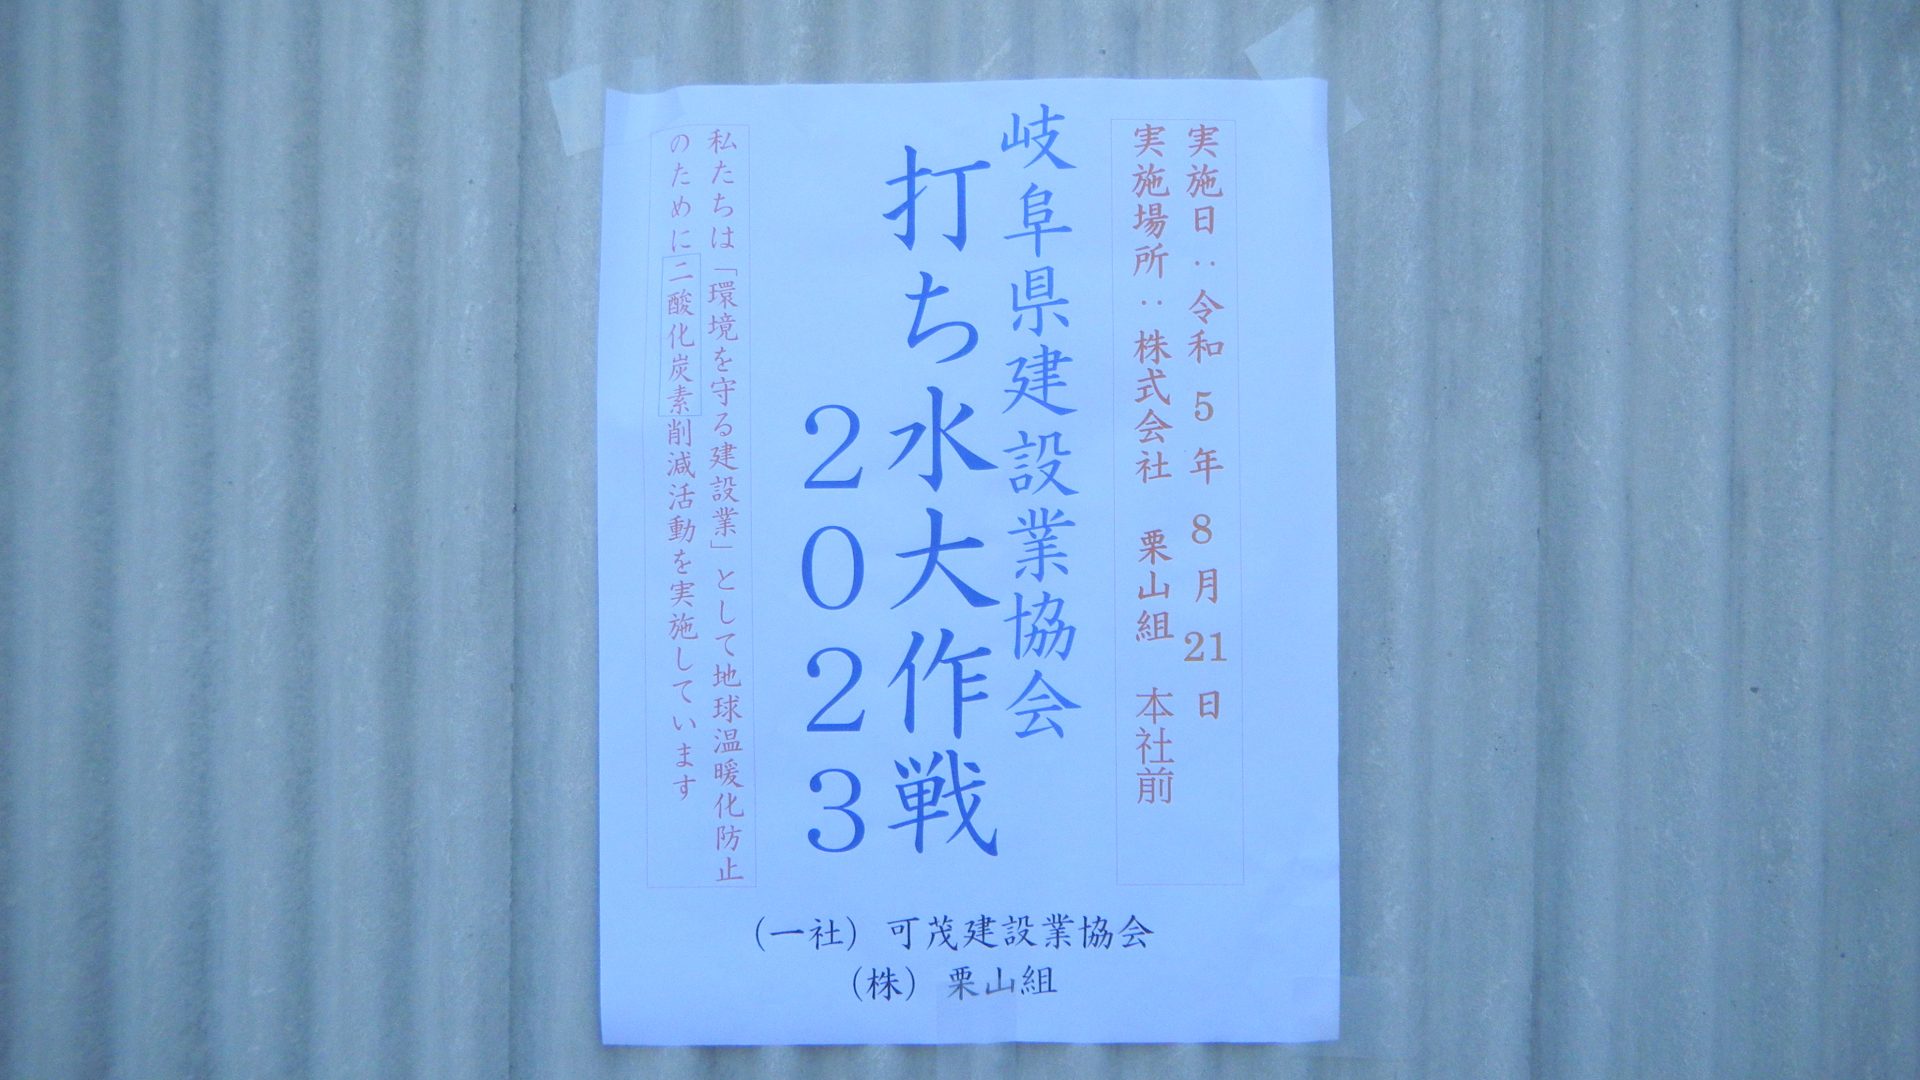 実施日：令和5年8月21日
実施場所：株式会社 栗山組 本社前
岐阜県建設業協会
打ち水大作戦
２０２３
私たちは「環境を守る建設業」として地球温暖化防止
のために二酸化炭素削減活動を実施しています
（一社）可茂建設業協会
（株）栗山組